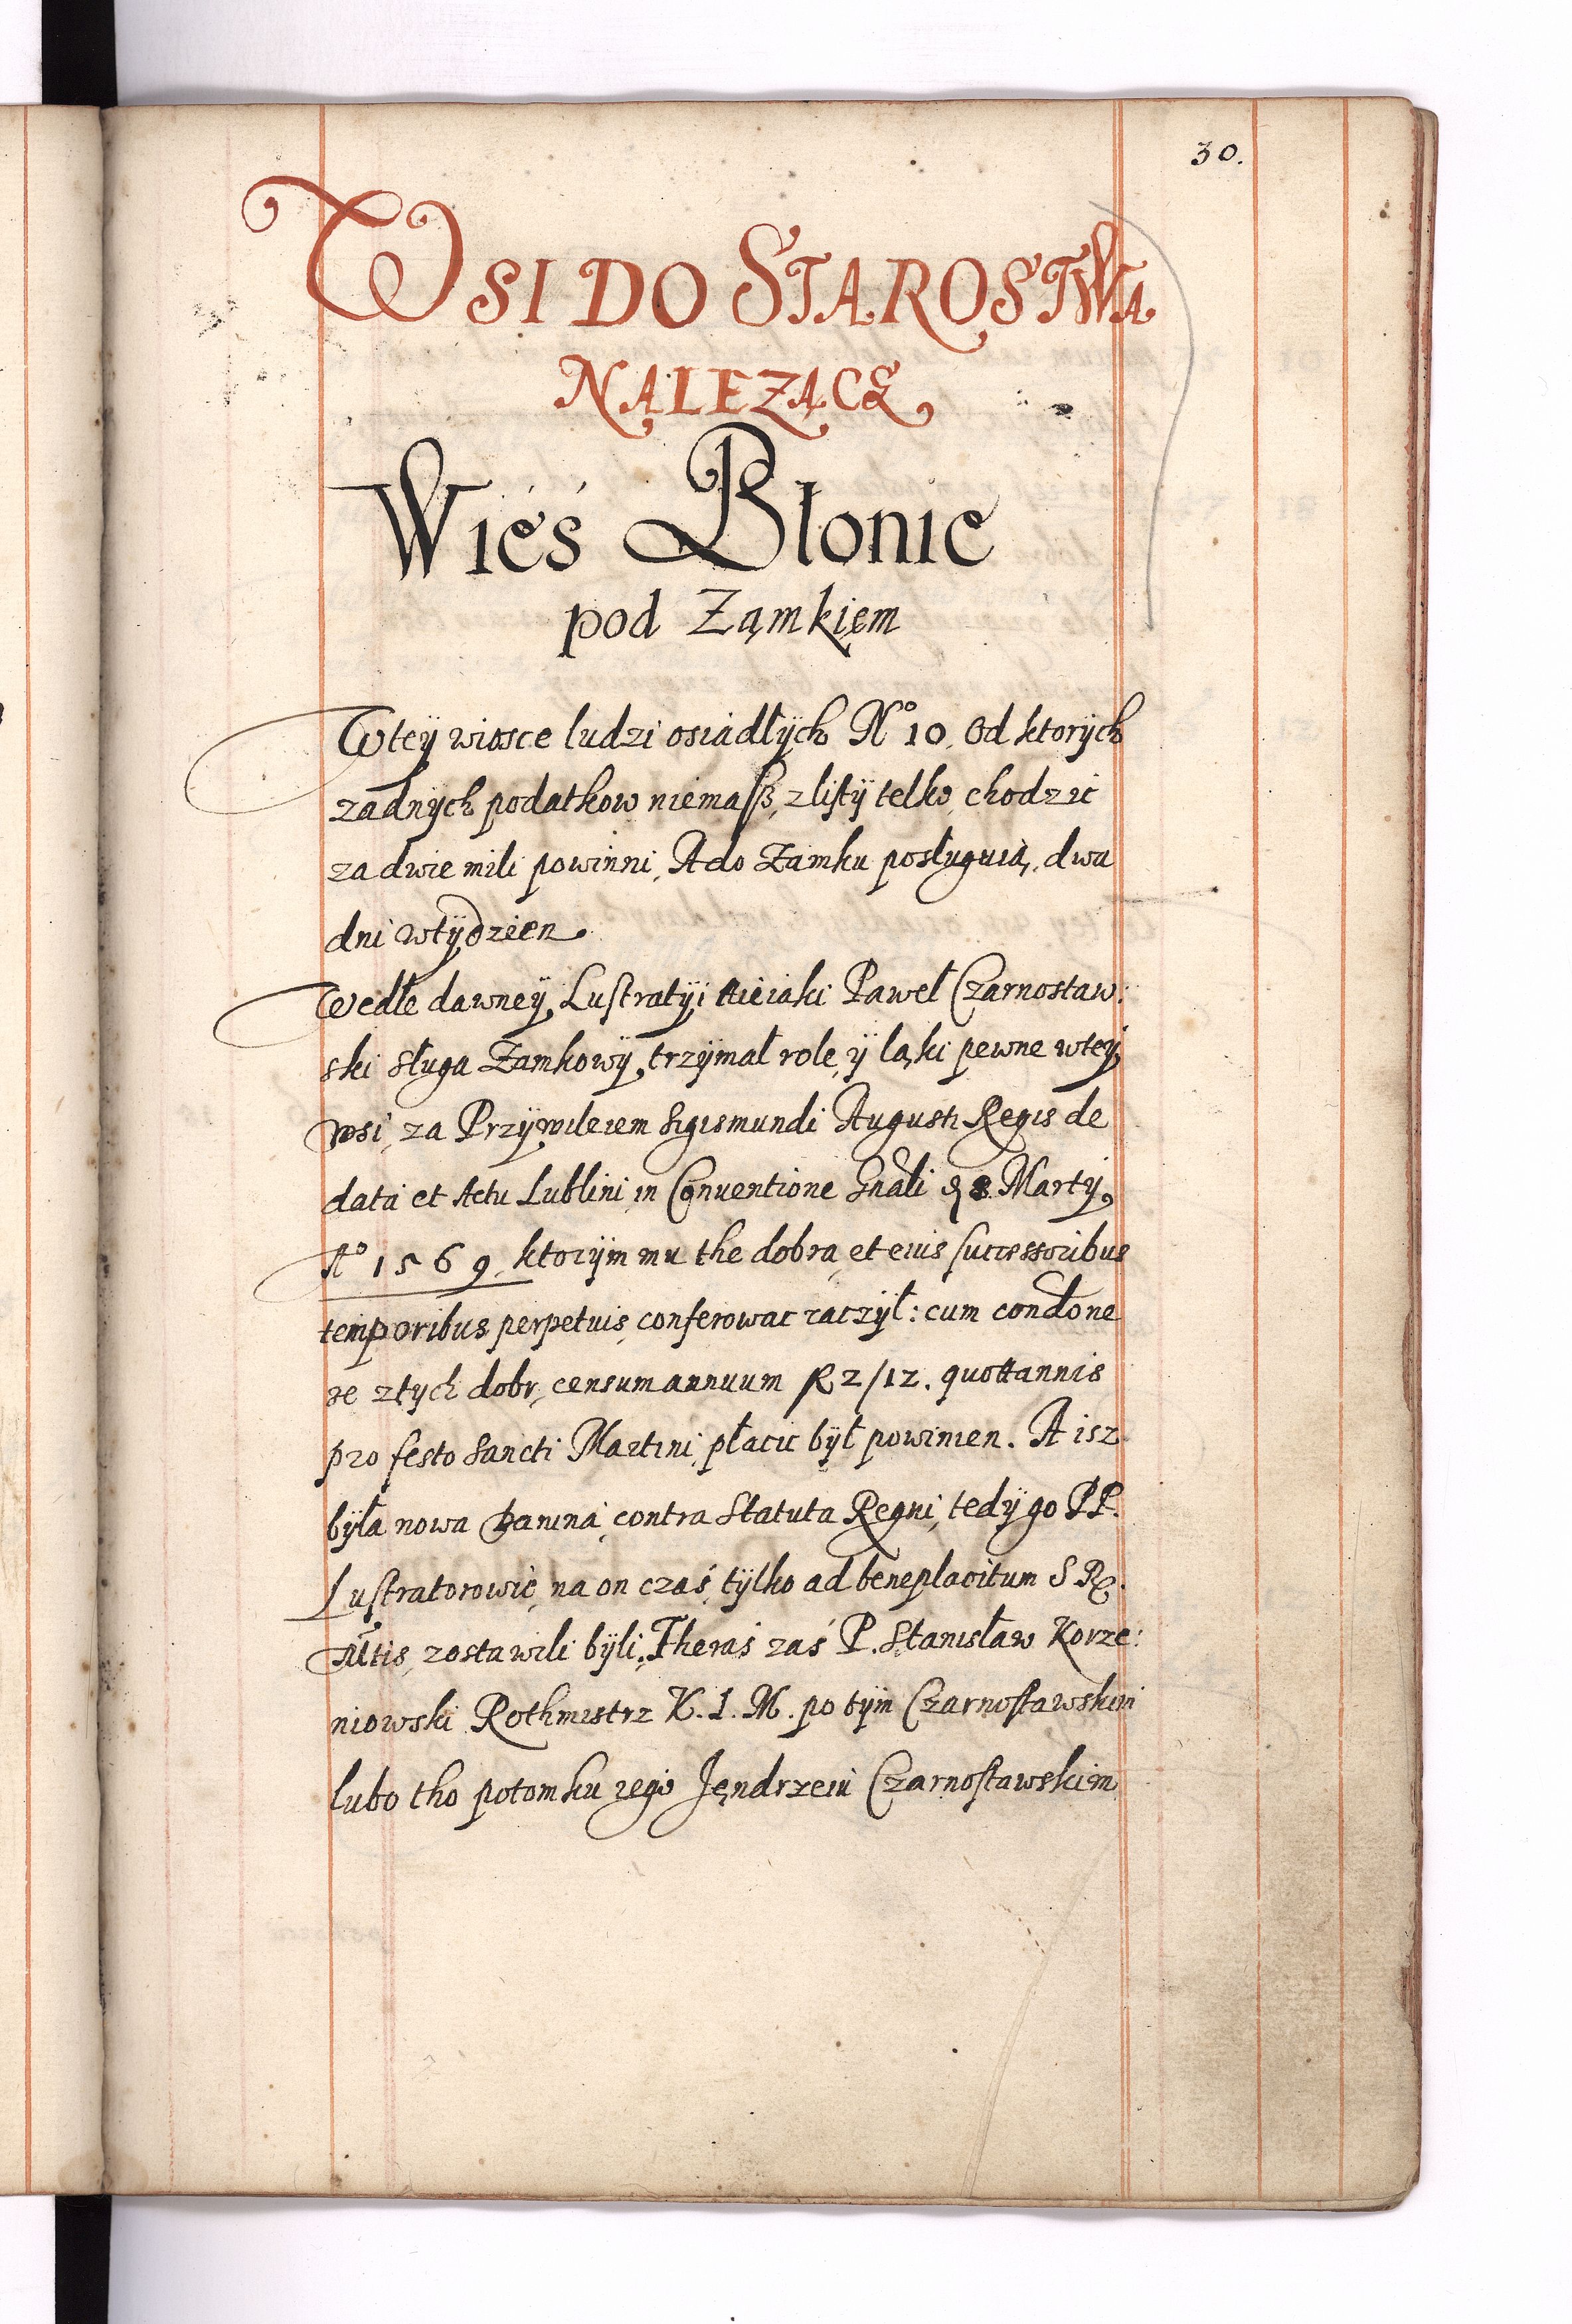 30.
WSI DO STAROSTWA
NALEZĄCE
Wieś Błonie
pod Zamkiem
W tey wiosce ludzi osiadłÿch Nº 10. Od ktorÿch
zadnÿch podatkow niemasz, z listÿ telko chodzic
za dwie mili powinni, A do Zamku posługuią, dwa
dni w tÿdzien
Wedle dawneÿ Lustratÿi nieiaki Paweł Czarnostaw:
ski sługa Zamkowÿ, trzÿmał role ÿ łąki pewne w teÿ
wsi, za Przÿwileiem Sigismundi Augusti Regis de
data et Actu Lublini in Conuentione Gnali 8 Martÿ,
Aº 1569, ktorÿm mu the dobra et eius successoribus
temporibus perpetuis conferowac raczÿł: cum condone
ze z tych dobr, censum annuum R 2/12. quottannis
pro festo Sancti Martini płacic bÿł powinien. A isz
bÿła nowa Danina contra Statuta Regni, tedÿ go PP.
Lustratorowie na on czas tÿlko ad beneplacitum S R.
Mtis zostawili bÿli, Theras zaś P. Stanisław Korze:
niowski Rothmistrz K. I. M. po tÿm Czarnostawskim
lubo tho potomku iego Jendrzeiu Czarnostawskim